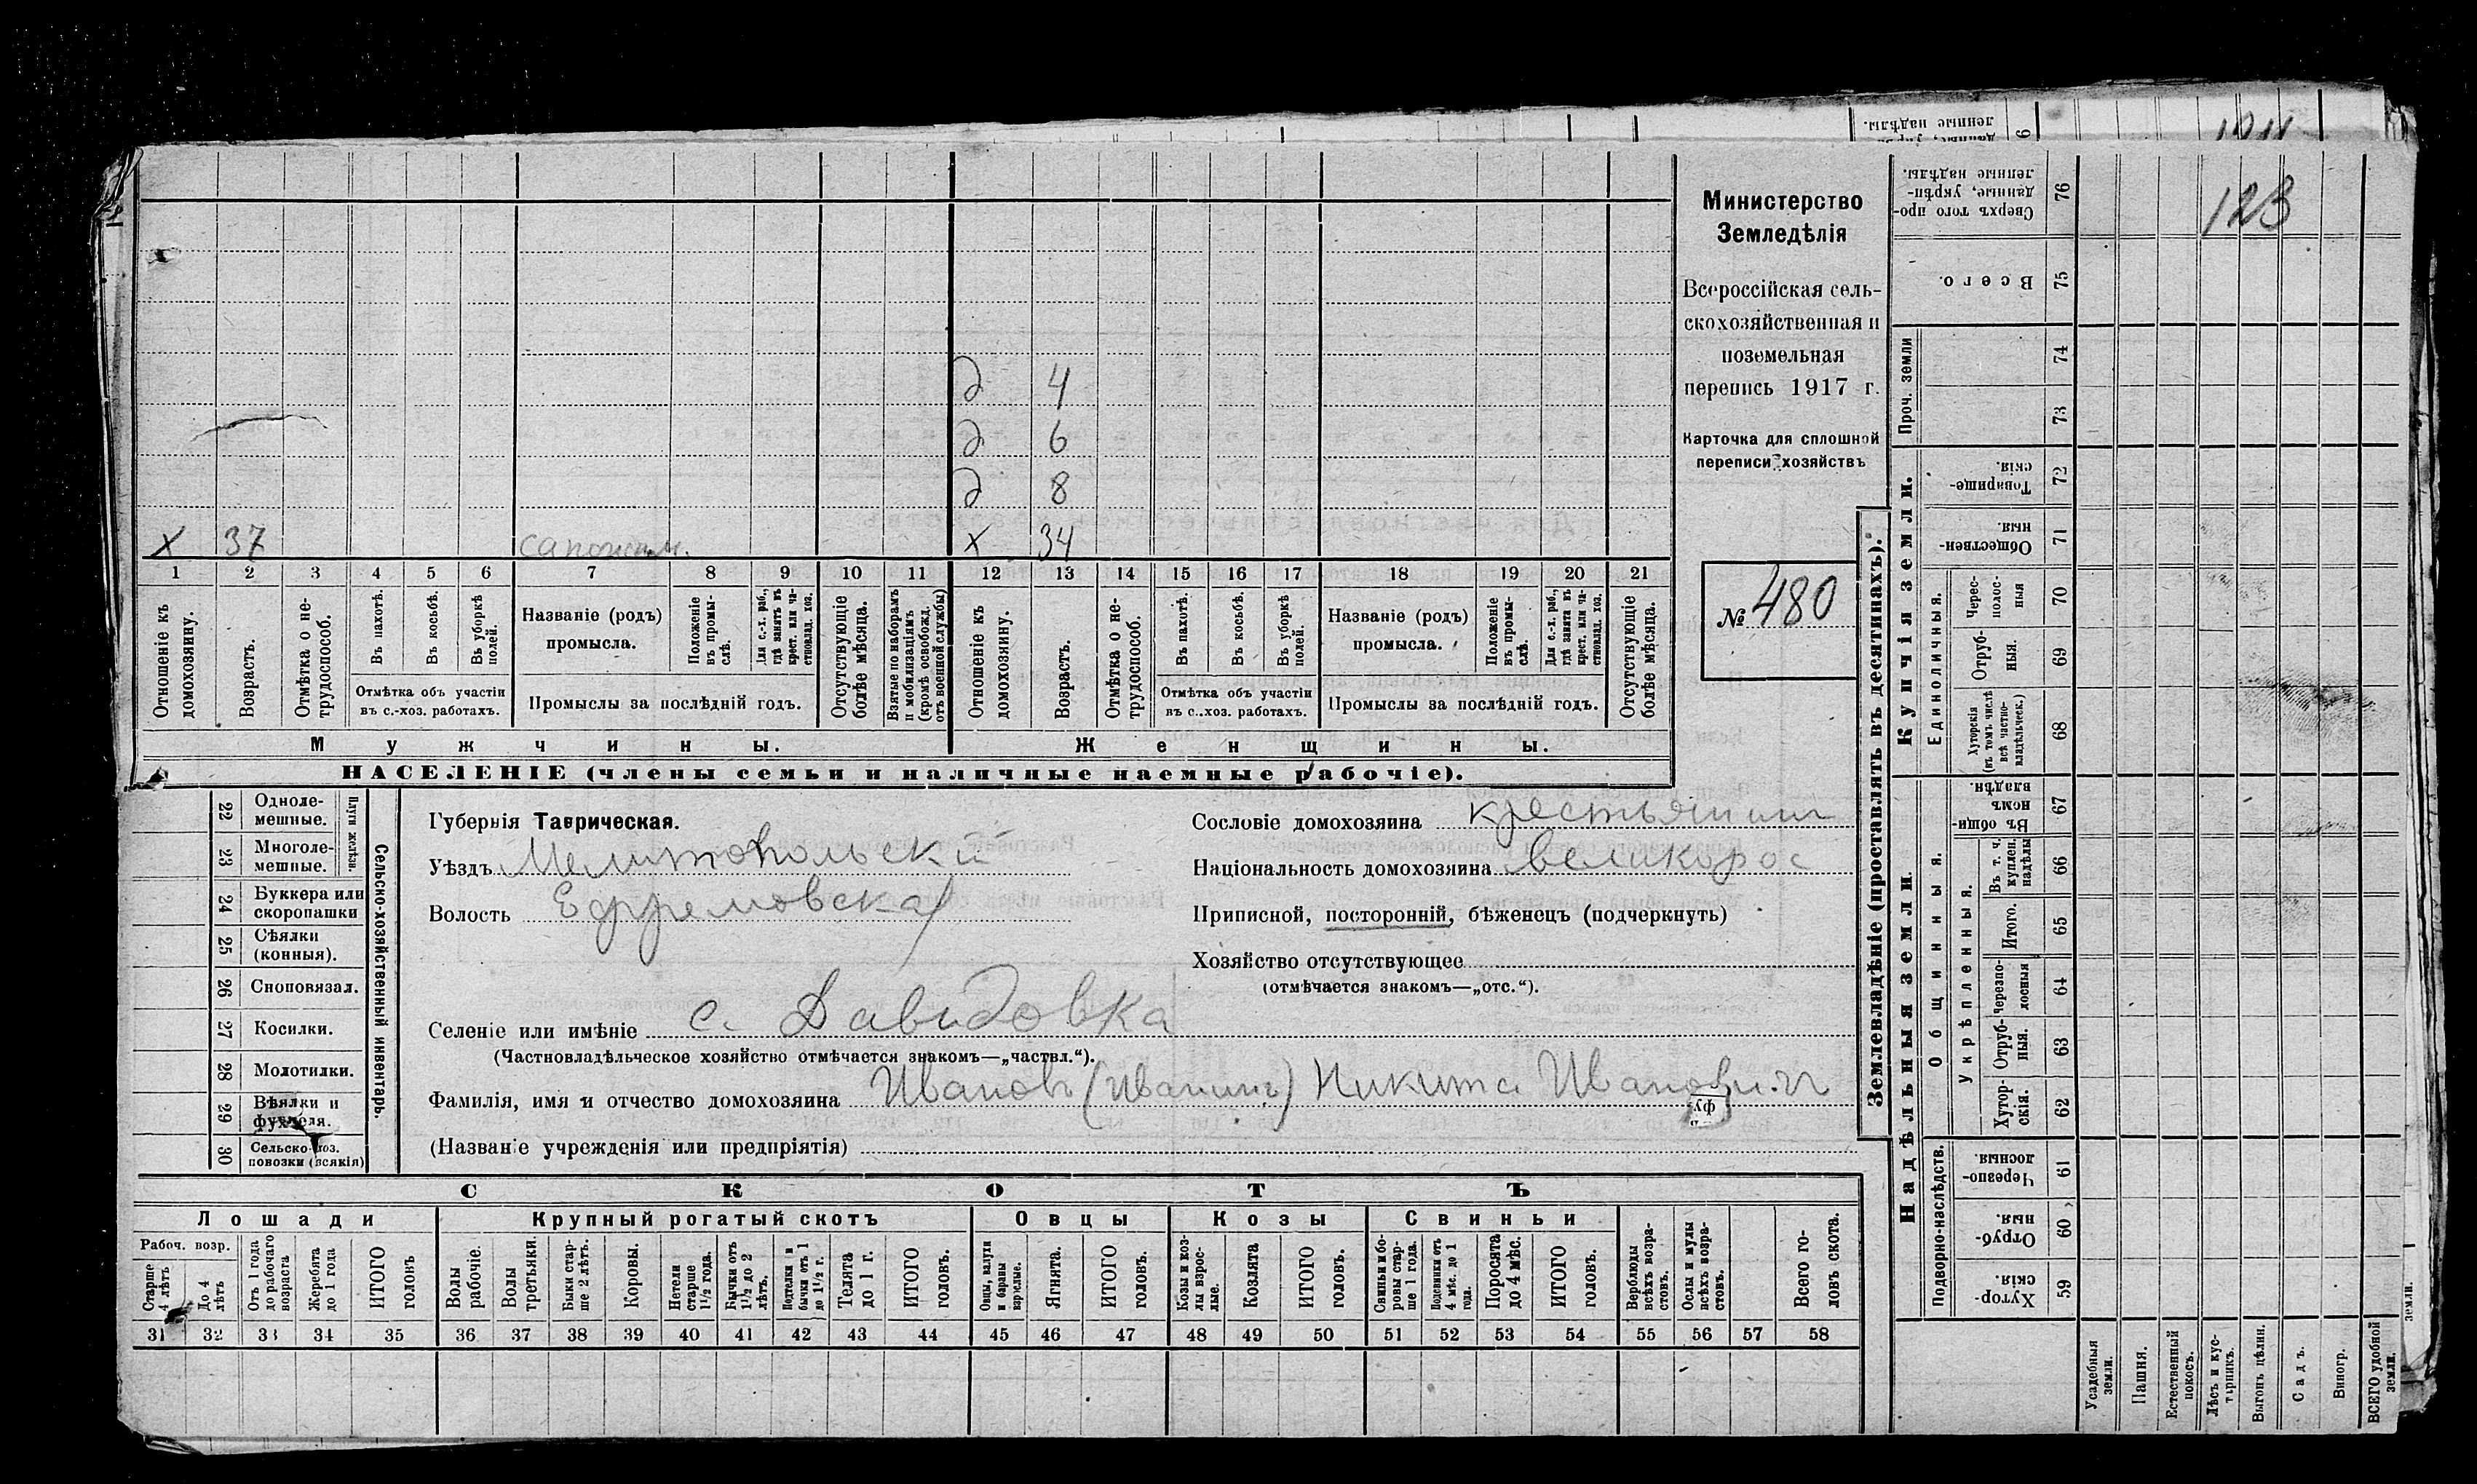 ленные надѣлы.
123
Министерство
Земледѣлія
Всероссійская сель-
скохозяйственная и
поземельная
перепись 1917 г.
Карточка для сплошной
переписи хозяйствъ
№ 480
д 4
д 6
д 8
х 37 х 34
1 2 3 4 5 6 7 8 9 10 11 12 13 14 15 16 17 18 19 20 21
Отношеніе къ домохозяину.
Возрастъ.
Отмѣтка о не-трудоспособ.
Въ пахотѣ.
Въ косьбѣ.
Въ уборкѣ полей.
Отмѣтка объ участіи
въ с.-хоз. работахъ.
Названіе (родъ)
промысла.
Положеніе въ промы-слѣ.
Для с.-х. раб., гдѣ занятъ въ крест. или ча-стновлад. хоз.
Промыслы за послѣдній годъ.
Отсутствующіе болѣе мѣсяца.
Взятые по наборамъ и мобилизаціямъ (кромѣ освобожд. отъ военной службы)
Отношеніе къ домохозяину.
Возрастъ.
Отмѣтка о не-трудоспособ.
Въ пахотѣ.
Въ косьбѣ.
Въ уборкѣ полей.
Отмѣтка объ участіи
въ с.-хоз. работахъ.
Названіе (родъ)
промысла.
Положеніе въ промы-слѣ.
Для с.-х. раб., гдѣ занята въ крест. или ча-стновлад. хоз.
Промыслы за послѣдній годъ.
Отсутствующіе болѣе мѣсяца.
Мужчины. Женщины.
НАСЕЛЕНІЕ (члены семьи и наличные наемные рабочіе).
Сельско-хозяйственный инвентарь.
Плуги желѣзн.
22 Одноле-мешные.
23 Многоле-мешные.
24 Буккера или скоропашки
25 Сѣялки (конныя).
26 Сноповязал.
27 Косилки.
28 Молотилки.
29 Вѣялки и
30 Сельско-хоз. повозки (всякія)
Губернія Таврическая.
Уѣздъ Мелитопольскій
Волость Ефремовская
Селеніе или имѣніе с. Давидовка
(Частновладѣльческое хозяйство отмѣчается знакомъ—„частвл.“).
Фамилія, имя и отчество домохозяина Ивановъ (Иванинъ) Никита Ивановичъ
(Названіе учрежденія или предпріятія)
Сословіе домохозяина крестьянинъ
Національность домохозяина великорос
Приписной, посторонній, бѣженецъ (подчеркнуть)
Хозяйство отсутствующее
(отмѣчается знакомъ—„отс.“).
СКОТЪ
Лошади Крупный рогатый скотъ Овцы Козы Свиньи
Рабоч. возр.
Старше 4 лѣтъ
До 4 лѣтъ
Отъ 1 года до рабочаго возраста
Жеребята до 1 года
ИТОГО головъ
Волы рабочіе.
Волы третьяки.
Быки стар-ше 2 лѣтъ.
Коровы.
Нетели старше 1½ года.
Бычки отъ 1½ до 2 лѣтъ.
Подтелки и бычки отъ 1 до 1½ г.
Телята до 1 г.
ИТОГО головъ.
Овцы, валухи и бараны взрослые.
Ягнята.
ИТОГО головъ.
Козы и коз-лы взрос-лые.
Козлята
ИТОГО головъ.
Свиньи и бо-ровы стар-ше 1 года.
Подсвинки отъ 4 мѣс. до 1 года.
Поросята до 4 мѣс.
ИТОГО головъ.
Верблюды всѣхъ возра-стовъ.
Ослы и мулы всѣхъ возра-стовъ.
Всего го-ловъ скота.
31 32 33 34 35 36 37 38 39 40 41 42 43 44 45 46 47 48 49 50 51 52 53 54 55 56 57 58
Землевладѣніе (проставлять въ десятинахъ).
Надѣльныя земли.
Подворно-наслѣдств.
Хутор-скія. 59
Отруб-ныя. 60
Черезпо-лосныя. 61
Общинныя.
Укрѣпленныя.
Хутор-скія. 62
Отруб-ныя. 63
Черезпо-лосныя 64
Итого. 65
Въ т. ч. куплен. надѣлы 66
Въ общи-номъ владѣн. 67
Купчія земли.
Единоличныя.
Хуторскія (въ томъ числѣ всѣ частно-владѣльческ.) 68
Отруб-ныя. 69
Черес-полос-ныя 70
Обществен-ныя. 71
Товарище-скія. 72
Проч. земли
73
74
Всего. 75
Сверхъ того про-данные, укрѣп-ленные надѣлы. 76
Усадебныя земли.
Пашня.
Естественный покосъ.
Лѣсъ и кус-тарникъ.
Выгонъ цѣлин.
Садъ.
Виногр.
ВСЕГО удобной земли.
земли.